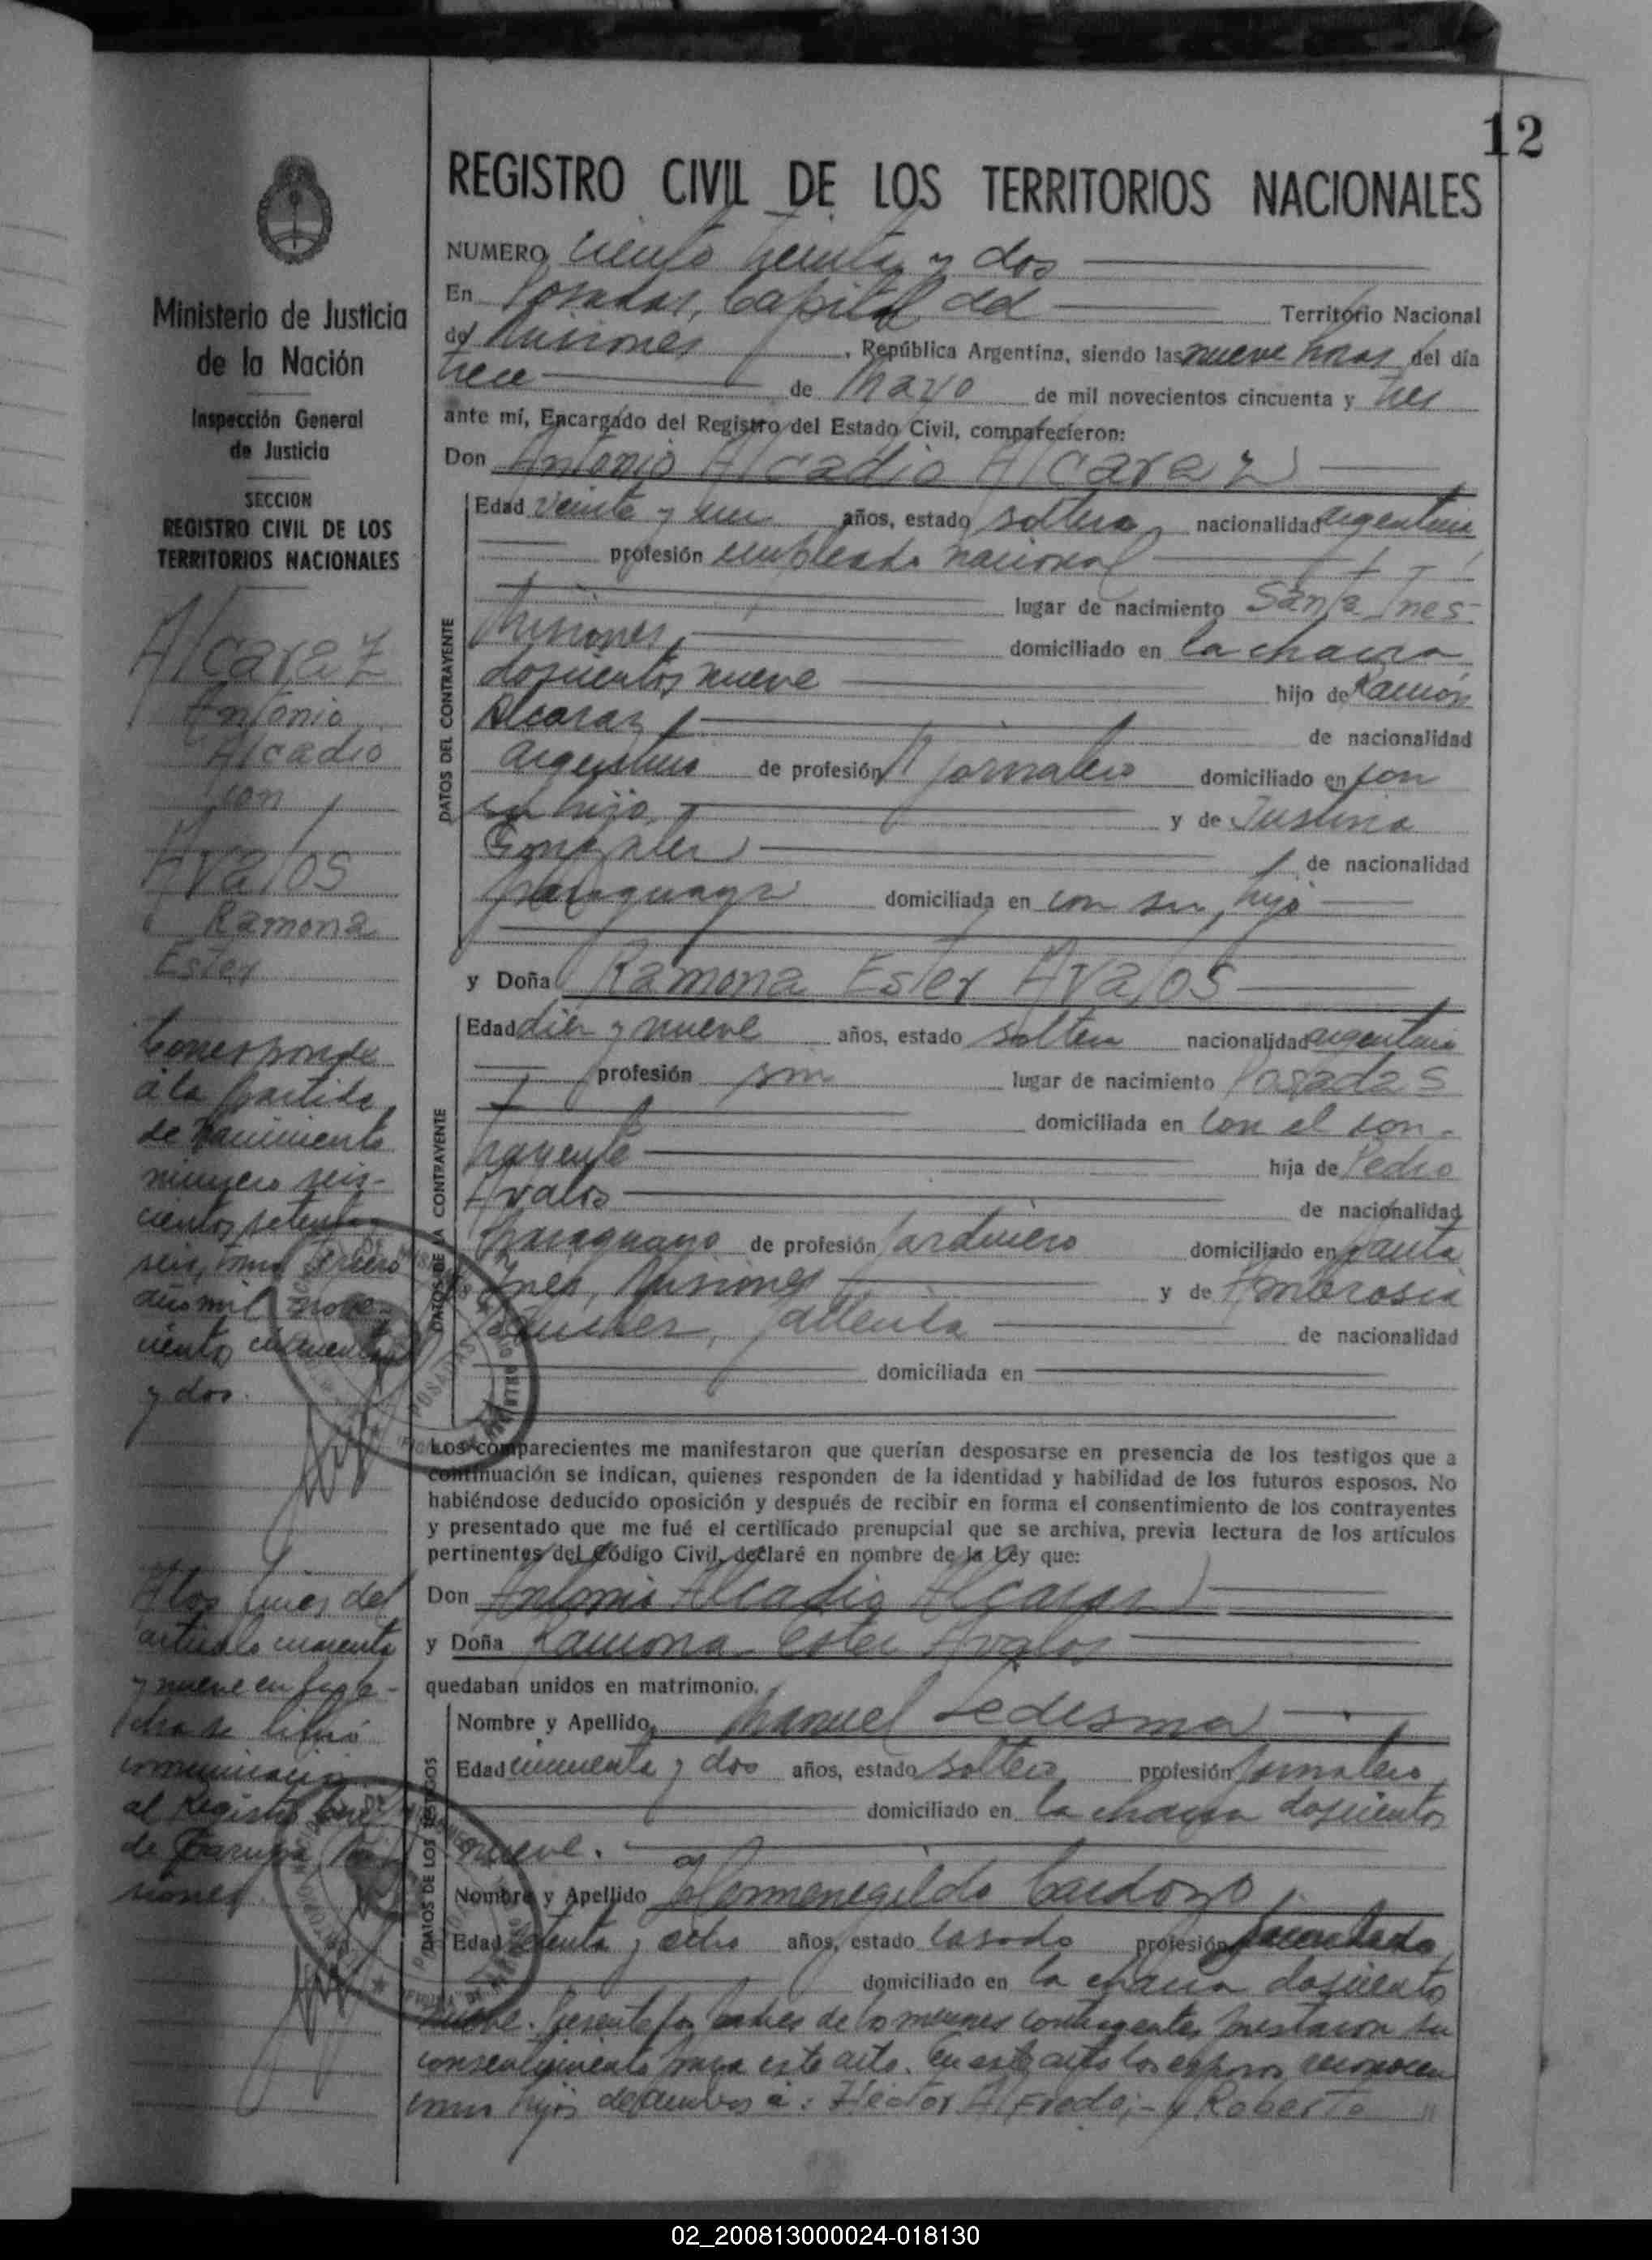 12
REGISTRO CIVIL DE LOS TERRITORIOS NACIONALES
NUMERO ciento treinta y dos
En Posadas, Capital del Territorio Nacional
de Misiones, República Argentina, siendo las nueve horas del día
trece de Mayo de mil novecientos cincuenta y tres
ante mí, Encargado del Registro del Estado Civil, comparecieron:
Don Antonio Alcadio Alcaraz
Edad veinte y un años, estado soltero, nacionalidad argentina
profesión empleado nacional
lugar de nacimiento Santa Inés-
Misiones, domiciliado en la chacra
doscientos nueve hijo de Ramón
Alcaraz, de nacionalidad
argentino de profesión jornalero domiciliado en con
su hijo, y de Justina
González de nacionalidad
paraguaya domiciliada en con su hijo
DATOS DEL CONTRAYENTE
y Doña Ramona Ester Avalos
Edad diez y nueve años, estado soltera nacionalidad argentina
profesión sin lugar de nacimiento Posadas
domiciliada en con el con-
trayente hija de Pedro
Avalos de nacionalidad
paraguayo de profesión jardinero domiciliado en Santa
Inés, Misiones y de Ambrosia
fallecida de nacionalidad
domiciliada en
DATOS DE LA CONTRAYENTE
Los comparecientes me manifestaron que querían desposarse en presencia de los testigos que a
continuación se indican, quienes responden de la identidad y habilidad de los futuros esposos. No
habiéndose deducido oposición y después de recibir en forma el consentimiento de los contrayentes
y presentado que me fué el certificado prenupcial que se archiva, previa lectura de los artículos
pertinentes del Código Civil, declaré en nombre de la Ley que:
Don Antonio Alcadio Alcaraz
y Doña Ramona Ester Avalos
quedaban unidos en matrimonio.
Nombre y Apellido Manuel Ledesma
Edad cincuenta y dos años, estado soltero profesión jornalero,
domiciliado en la chacra doscientos
nueve. y
Nombre y Apellido Hermenegildo Cardozo
Edad y ocho años, estado casado profesión
domiciliado en la chacra doscientos
nueve. Presente los padres de los menores contrayentes prestaron su
consentimiento para este acto. En este acto los esposos reconocen
como hijos de ambos a: Héctor Alfredo;- y Roberto
DATOS DE LOS TESTIGOS
Ministerio de Justicia
de la Nación
Inspección General
de Justicia
SECCION
REGISTRO CIVIL DE LOS
TERRITORIOS NACIONALES
Alcaraz
Antonio
Alcadio
con
Avalos
Ramona
Ester
Corresponde
a la partida
de nacimiento
número seis-
cientos setenta y
seis, tomo tercero
año mil nove-
cientos cincuenta
y dos.
POSADAS
A los fines del
artículo cuarenta
y nueve en la fe-
cha se libró
comunicación
al Registro Civil
de Garupá, Mi-
siones.
02_200813000024-018130